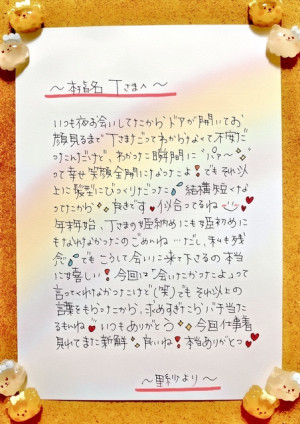 〜本指名 Tさまへ〜
いつも夜お会いしてたから ドアが開いてお
顔見るまで Tさまだってわからなくて不安だ
ったんだけど、わかった瞬間に〝パァ〜〟
って幸せ笑顔全開になったよ❗でもそれ以
上に髪型にびっくりだった 結構短くな
ってたから 良きです 似合ってるね
年末年始、Tさまの姫納めにも姫初めに
もなれなかったのごめんね…だし、私も残
念 でもこうして会いに来て下さるの本当
に嬉しい❗今回は「会いたかったよ」って
言ってくれなかったけど(笑)でもそれ以上の
言葉をもらったから、求めすぎたらバチ当た
るもんね いつもありがとう 今回仕事着
見れてまた新鮮 良いね❗本当ありがとう
〜里紗より〜